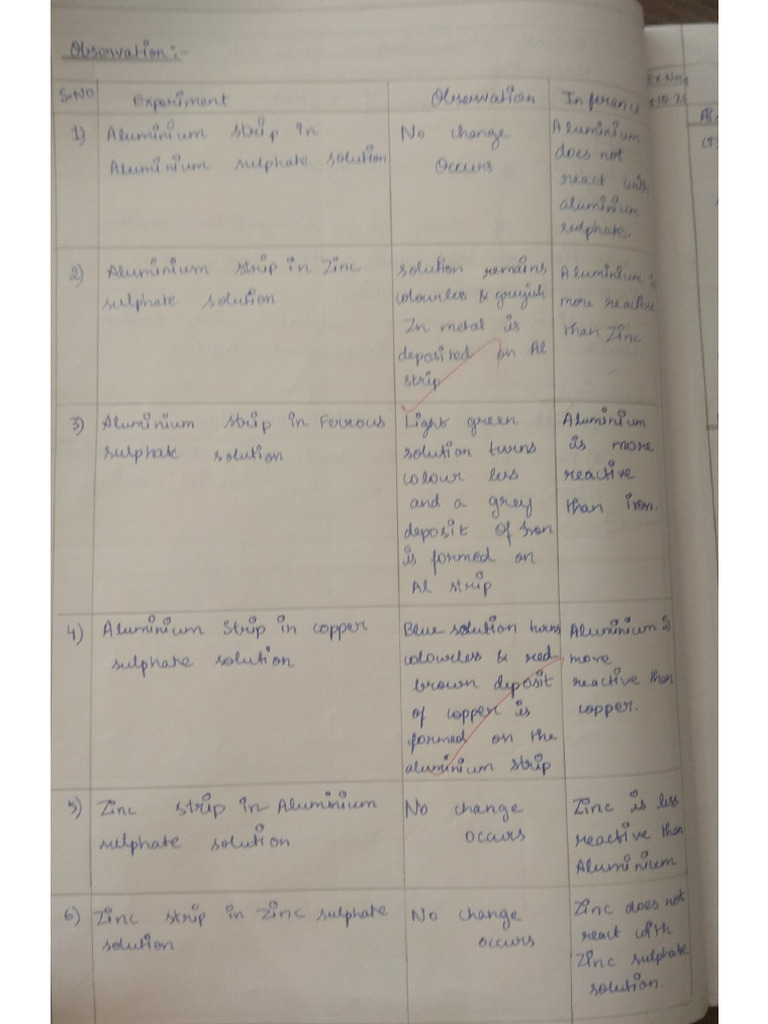 Observation:-
S.NO Experiment Observation Inference
1) Aluminium strip in
Aluminium sulphate solution
No change
Occurs
Aluminium
does not
react with
aluminium
sulphate.
2) Aluminium strip in Zinc
sulphate solution
solution remains
colourless & greyish
Zn metal is
deposited on Al
strip
Aluminium is
more reactive
than Zinc
3) Aluminium strip in Ferrous
sulphate solution
Light green
solution turns
colour less
and a grey
deposit of Iron
is formed on
Al strip
Aluminium
is more
reactive
than iron.
4) Aluminium Strip in copper
sulphate solution
Blue solution turns
colourless & red
brown deposit
of copper is
formed on the
aluminium strip
Aluminium is
more
reactive than
copper.
5) Zinc strip in Aluminium
sulphate solution
No change
occurs
Zinc is less
reactive than
Aluminium
6) Zinc strip in Zinc sulphate
solution
No change
occurs
Zinc does not
react with
Zinc sulphate
solution.